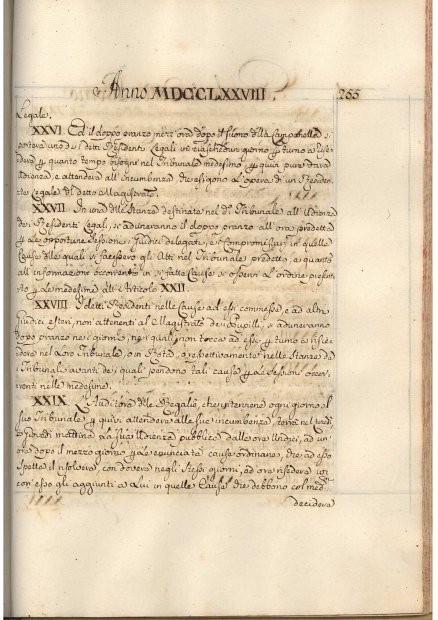 Anno MDCCLXXVIII. 255
Legale.
XXVI. Ed il doppo pranzo mezz'ora dopo il suono della Campanella si
porterà uno de' detti Presidenti Legali in ciaschedun giorno per turno a risie-
dere per quanto tempo nel Tribunale medesimo, per quivi pure dare
Udienza, e attendere all'Incumbenza che esigono l'opera di un Presiden-
te Legale del detto Magistrato.
XXVII. In una delle Stanze destinate nel do. Tribunale all'Udienza
de' Presidenti Legali, si aduneranno il doppo pranzo all'ora predetta
per le opportune Sessioni i Giudici delegati, e Compromissari in quelle
Cause delle quali si facessero gli Atti nel Tribunale predetto, e quanto
all'informazioni occorrenti in si fatte Cause si osservi l'ordine prescrit-
to per le medesime all'Articolo XXII.
XXVIII. I detti Presidenti nelle Cause ad essi commesse, e ad altri
Giudici esteri, non attenenti al Magistrato de' Pupilli, si aduneranno
doppo pranzo ne' giorni, ne' quali non tocca ad essi per turno a risie-
dere nel loro Tribunale, o in Rota, o rispettivamente nelle Stanze de'
Tribunali avanti de' quali pendono tali cause per le Sessioni occor-
renti nelle medesime.
XXIX. L'Auditore delle Regalie, che interviene ogni giorno al
suo Tribunale per quivi attendere alle sue incumbenze, terrà nel
e Giovedì mattina la sua Udienza pubblica dalle ore Undici, ad un'
ora dopo il mezzo giorno per le enunciate cause ordinarie, che ad esso
Spetta il risolvere, con dovere negli Stessi giorni, ad ora risedere
con esso gli aggiunti a Lui in quelle Cause che debbono col
decidere